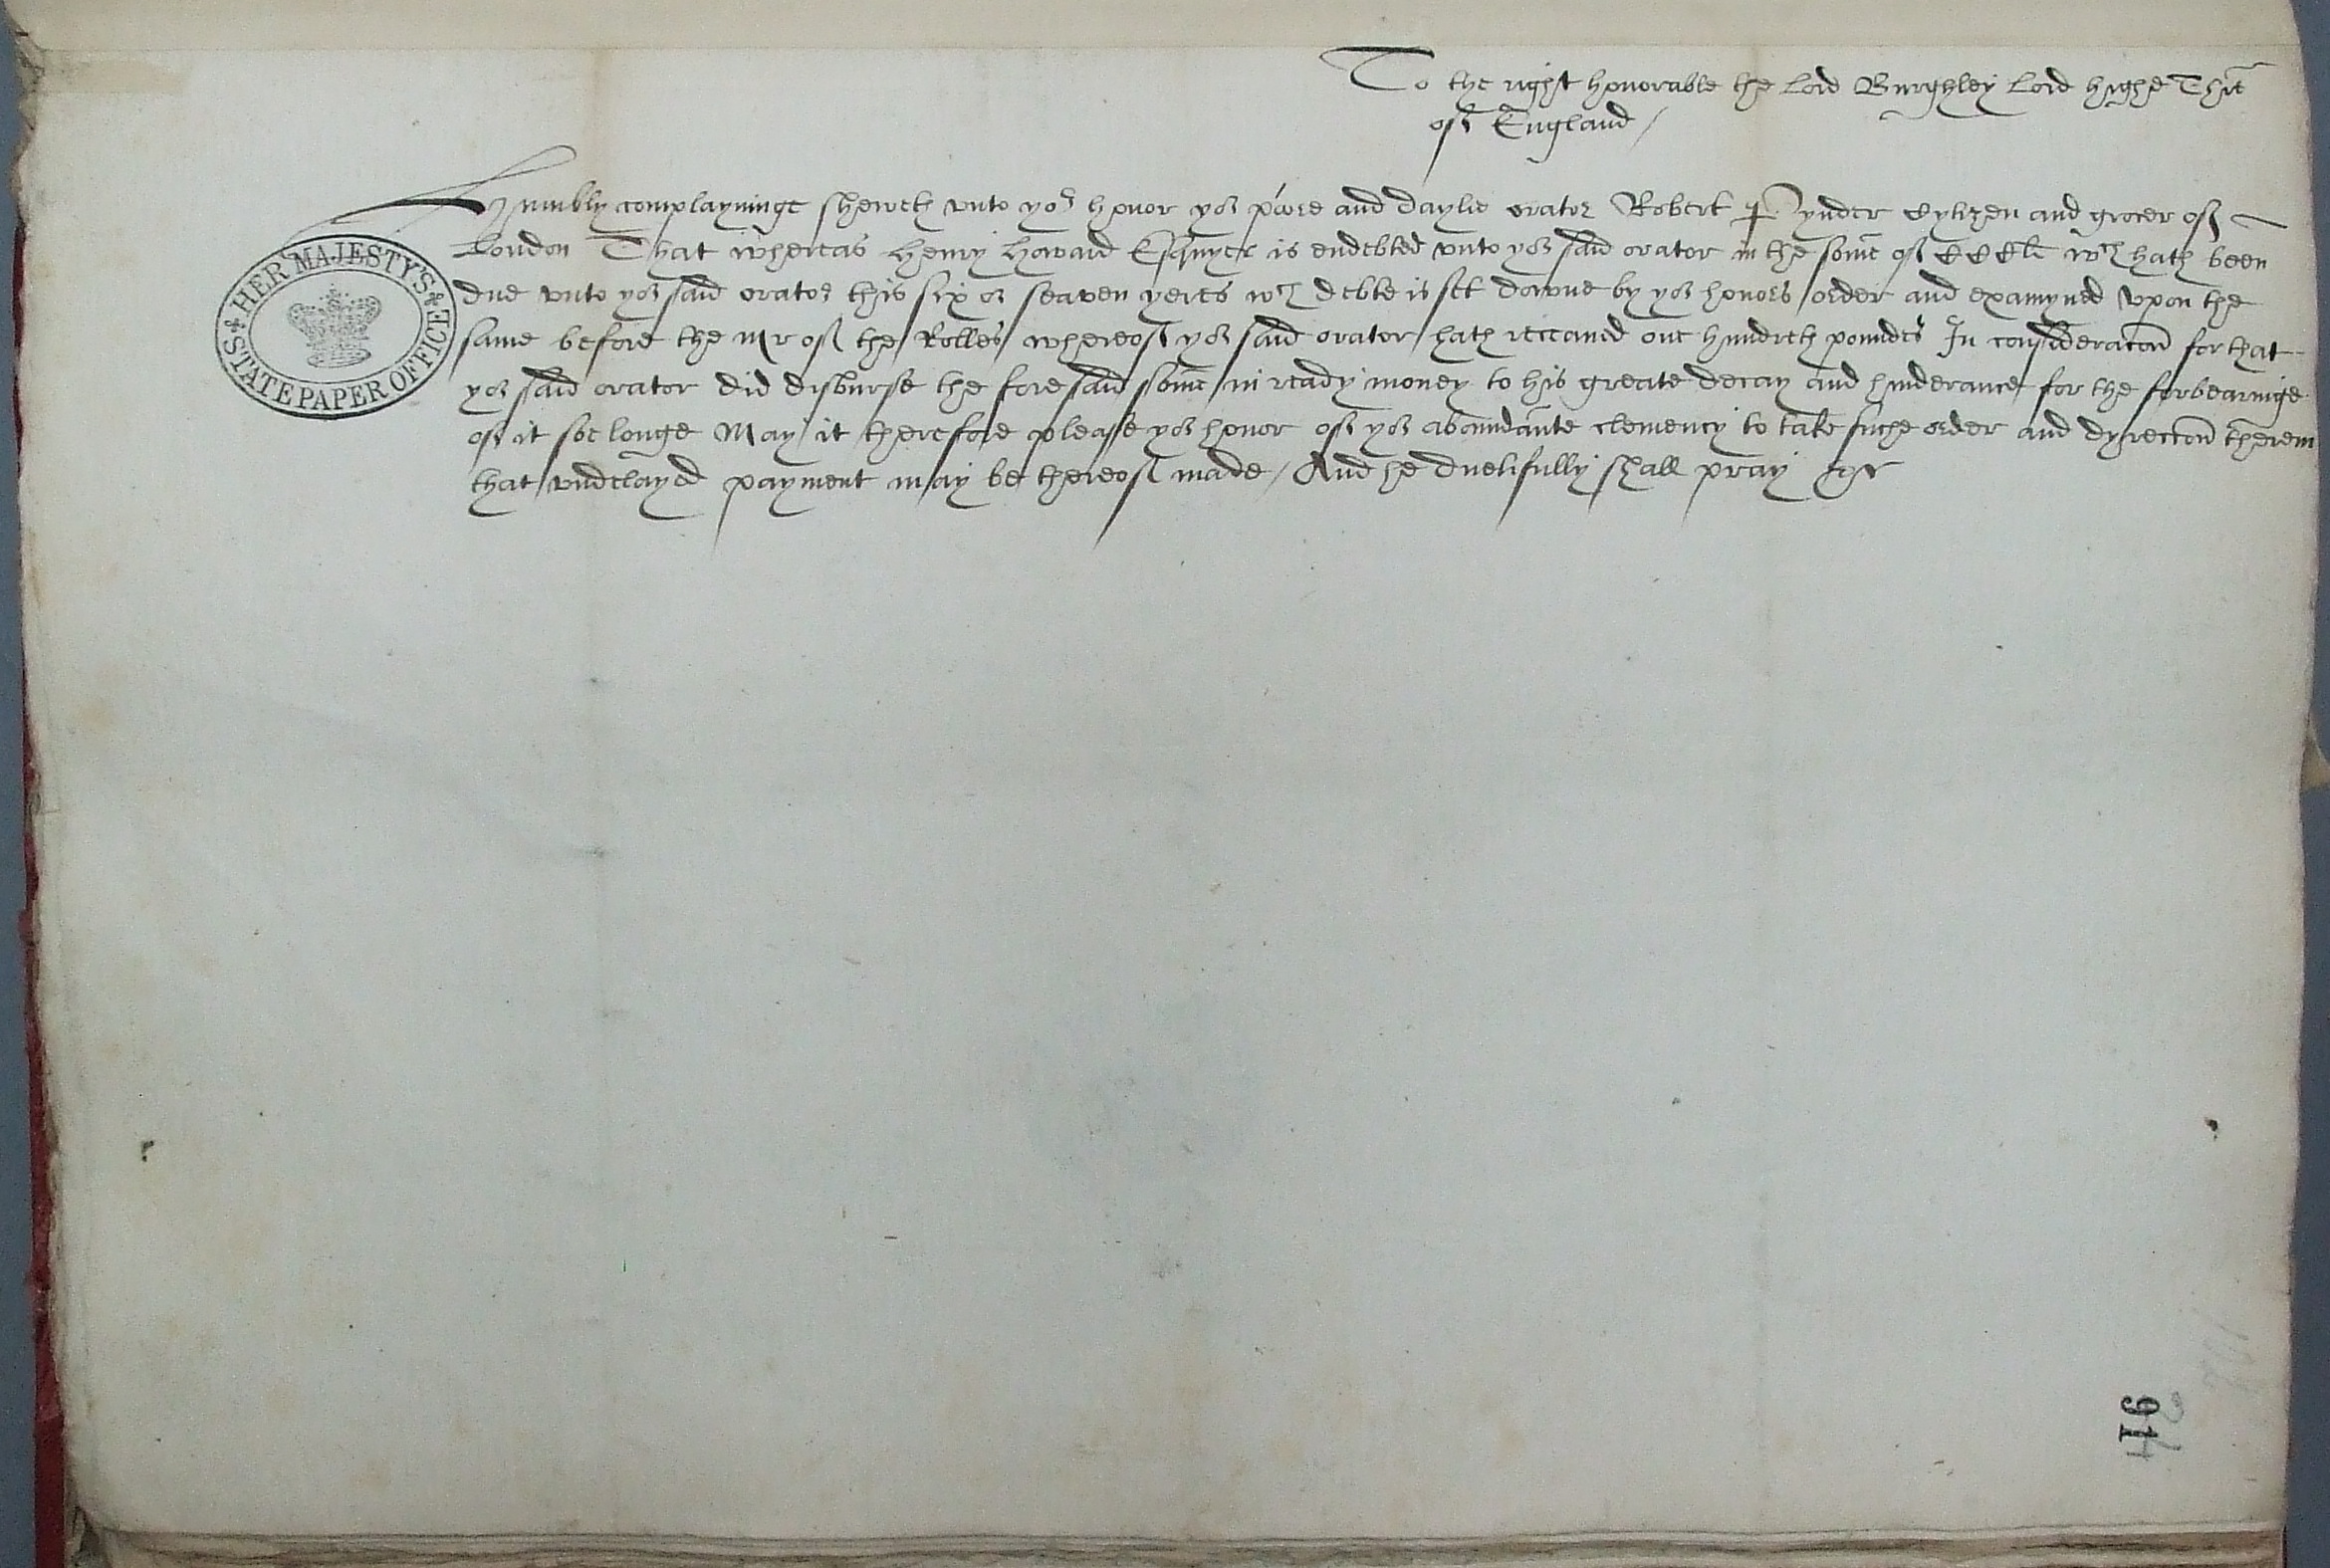 To the right honorable the Lord Burghley Lord highe Thrē
of England /
Humbly complayninge sheweth vnto yor honor yor pore and daylie orator Robert Pynder Cytizen and grocer of
London That whereas Henry Howard Esquyer is endebted vnto yor said orator in the some of CCCli wch hath been
due vnto yor said orator this six or seaven yeres wch debte is set downe by yor honors order and examyned vpon the
same before the Mr of the Rolles whereof yor said orator hath receaued one hundreth poundes In consideracon for that
yor said orator did disburse the foresaid some in ready money to his greate decay and hinderance for the forbearinge
of it soe longe May it therefore please yor honor of yor aboundante clemency to take suche order and dyreccon therein
that vndelayed payment may be thereof made / And he duetifully shall pray &c
HER MAJESTY'S STATE PAPER OFFICE
91